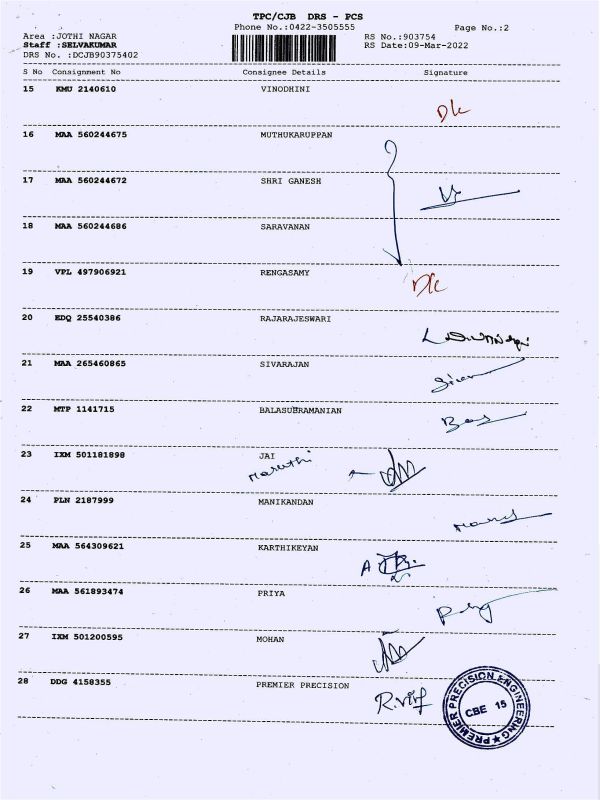 TPC/CJB DRS - PCS
Phone No.:0422-3505555
Page No.:2
Area :JOTHI NAGAR
RS No.:903754
Staff :SELVAKUMAR
RS Date:09-Mar-2022
DRS No. :DCJB90375402
S No Consignment No Consignee Details Signature
15 KMU 2140610 VINODHINI
16 MAA 560244675 MUTHUKARUPPAN
17 MAA 560244672 SHRI GANESH
18 MAA 560244686 SARAVANAN
19 VPL 497906921 RENGASAMY
20 EDQ 25540386 RAJARAJESWARI
21 MAA 265460865 SIVARAJAN
22 MTP 1141715 BALASUBRAMANIAN
23 IXM 501181898 JAI
Maruthi
24 PLN 2187999 MANIKANDAN
25 MAA 564309621 KARTHIKEYAN
26 MAA 561893474 PRIYA
27 IXM 501200595 MOHAN
28 DDG 4158355 PREMIER PRECISION
PREMIER PRECISION ENGINEERING ★
CBE 15